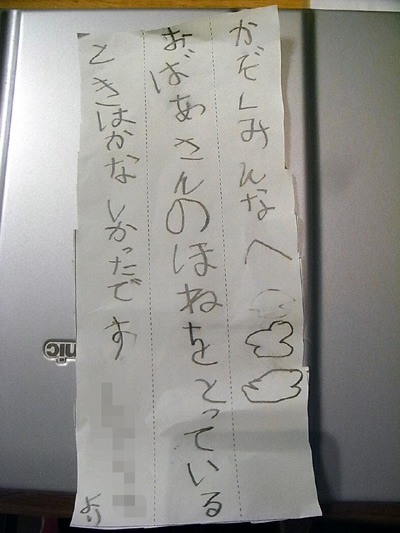 かぞくみんなへ
おばあさんのほねをとっている
ときはかなしかったです
より
nic